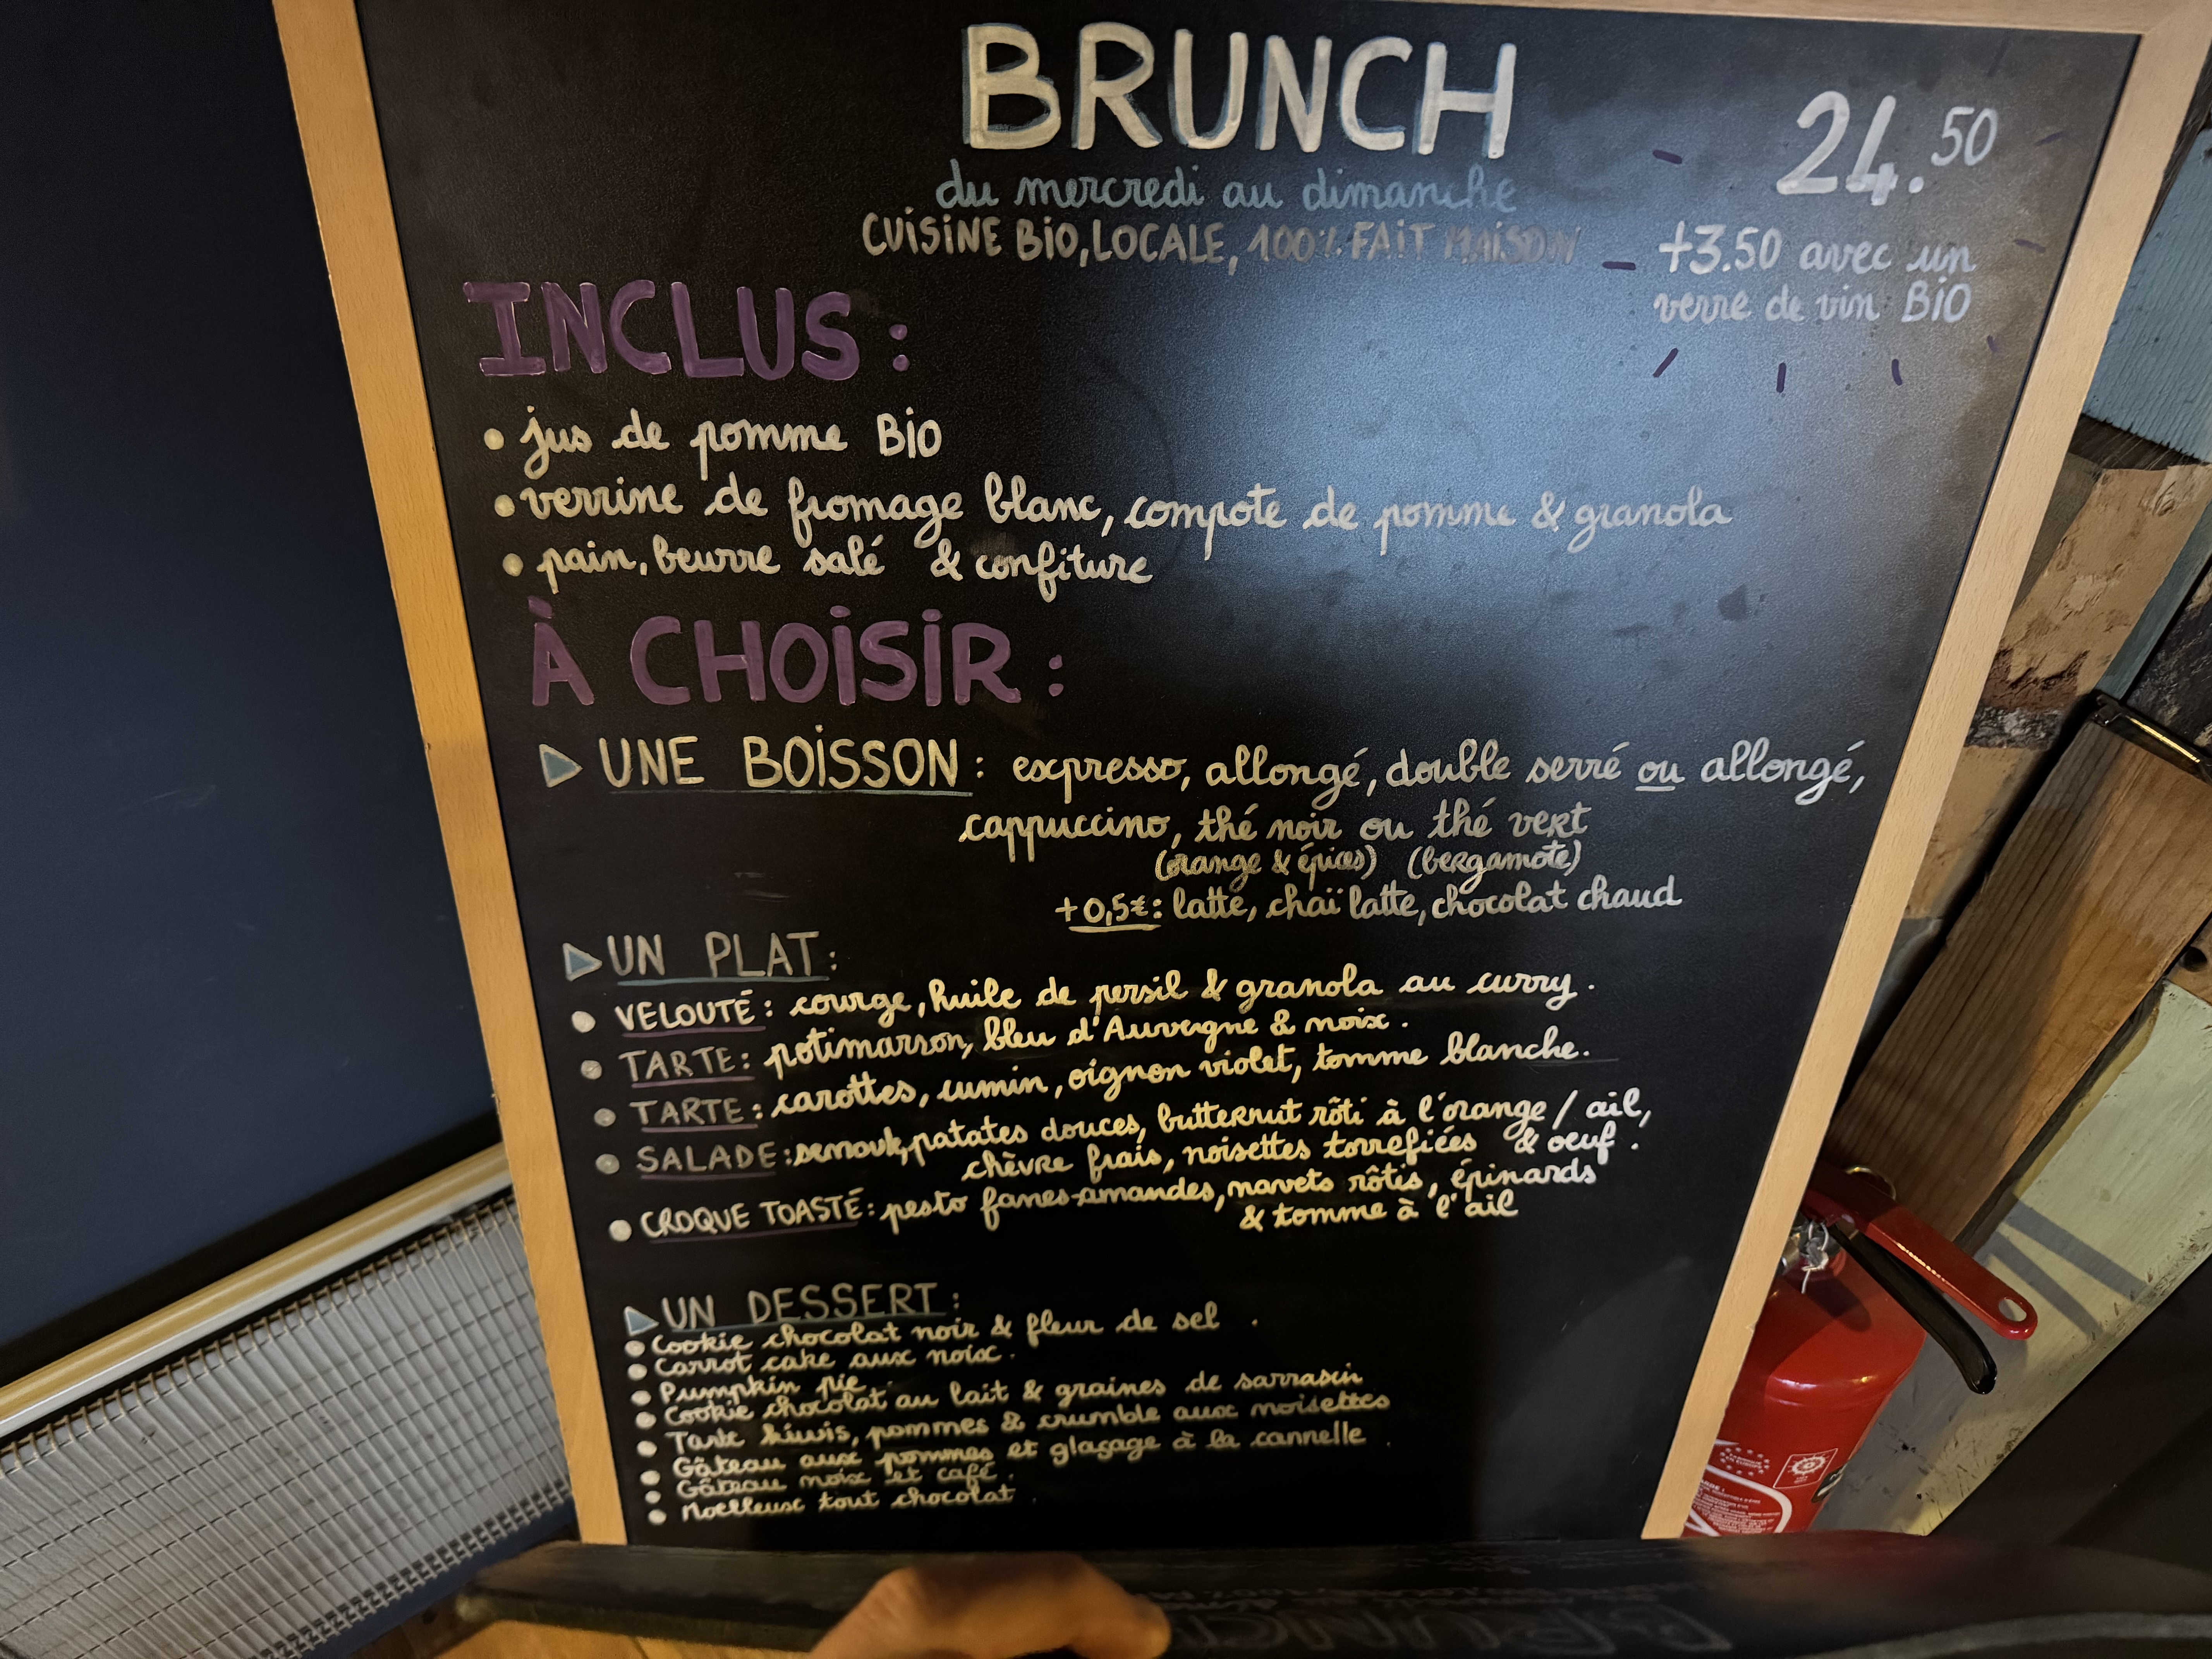 BRUNCH
24.50
du mercredi au dimanche
CUISINE BIO, LOCALE, 100% FAIT MAISON
+3.50 avec un
verre de vin BIO
INCLUS :
• jus de pomme BIO
• verrine de fromage blanc, compote de pomme & granola
• pain, beurre salé & confiture
À CHOISIR :
▶ UNE BOISSON : expresso, allongé, double serré ou allongé,
cappuccino, thé noir ou thé vert
(orange & épices) (bergamote)
+0,5€: latte, chaï latte, chocolat chaud
▶ UN PLAT :
• VELOUTÉ : courge, huile de persil & granola au curry.
• TARTE : potimarron, bleu d'Auvergne & noix.
• TARTE : carottes, cumin, oignon violet, tomme blanche.
• SALADE : semoule, patates douces, butternut rôti à l'orange / ail,
chèvre frais, noisettes torrefiées & oeuf.
• CROQUE TOASTÉ : pesto fanes-amandes, navets rôtis, épinards
& tomme à l'ail
▶ UN DESSERT :
• Cookie chocolat noir & fleur de sel.
• Carrot cake aux noix.
• Pumpkin pie.
• Cookie chocolat au lait & graines de sarrasin
• Tarte kiwis, pommes & crumble aux noisettes
• Gâteau aux pommes et glaçage à la cannelle.
• Gâteau noix et café.
• Moelleux tout chocolat.